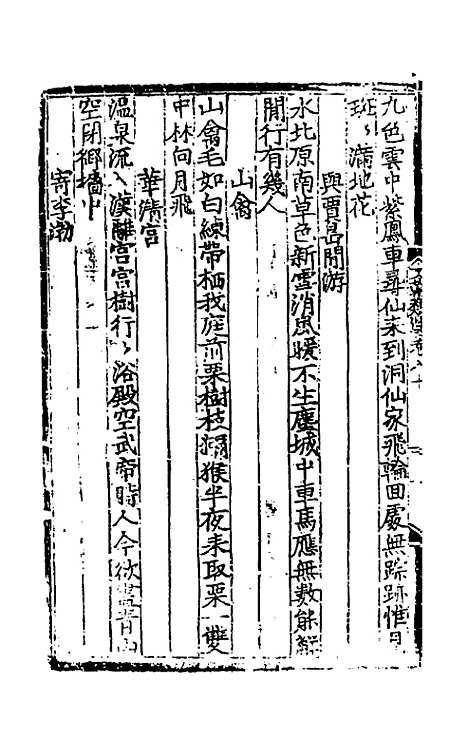 九色雲中紫鳳車尋仙来到洞仙家飛輪回處無踪跡惟
班〻滿地花
與賈島閒游
水北原南草色新雪消風暖不生塵城中車馬應無數能解
閒行有幾人
山禽
山禽毛如白練帶栖我庭前栗樹枝獼猴半夜来取栗一雙
中林向月飛
華清宫
温泉流〻漢離宫宫樹行〻浴殿空武帝時人今欲盡青山
空閉御墻中
寄李渤